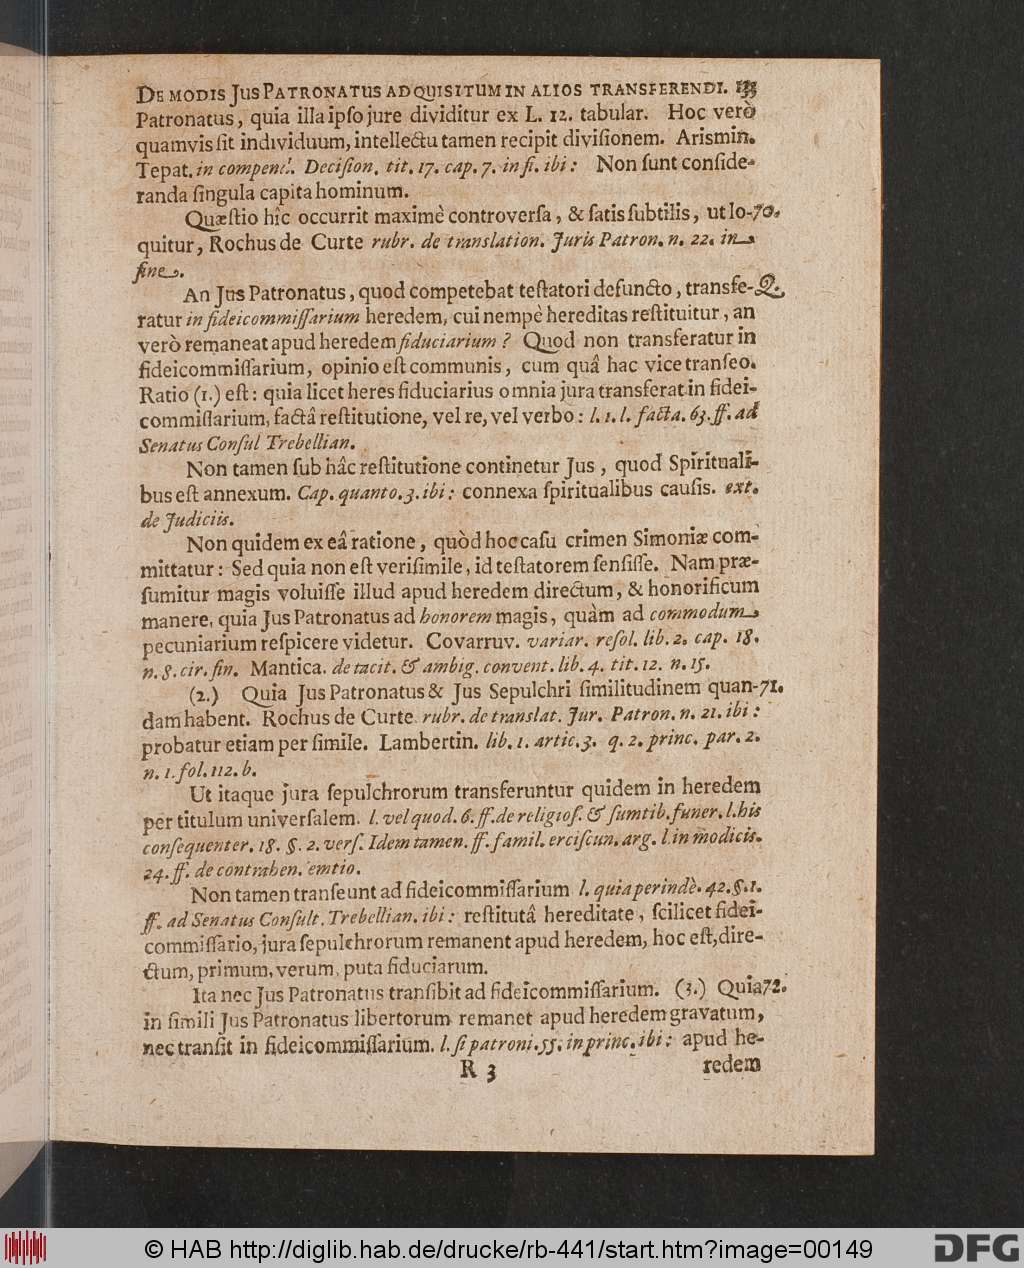 DE MODIS JUS PATRONATUS ADQUISITUM IN ALIOS TRANSFERENDI. 133
Patronatus, quia illa ipſo jure dividitur ex L. 12. tabular. Hoc verò
quamvis ſit individuum, intellectu tamen recipit diviſionem. Arismin.
Tepat. in compend. Deciſion. tit. 17. cap. 7. in fi. ibi: Non ſunt conſide-
randa ſingula capita hominum.
Quæſtio hîc occurrit maximè controverſa, & ſatis ſubtilis, ut lo- 70.
quitur, Rochus de Curte rubr. de translation. Juris Patron. n. 22. in
fine.
An Jus Patronatus, quod competebat teſtatori defuncto, transfe- Q.
ratur in fideicommiſſarium heredem, cui nempè hereditas reſtituitur, an
verò remaneat apud heredem fiduciarium? Quod non transferatur in
fideicommiſſarium, opinio eſt communis, cum quâ hac vice tranſeo.
Ratio (1.) eſt: quia licet heres fiduciarius omnia jura transferat in fidei-
commiſſarium, factâ reſtitutione, vel re, vel verbo: l. 1. l. facta. 63. ff. ad
Senatus Conſul Trebellian.
Non tamen ſub hâc reſtitutione continetur Jus, quod Spirituali-
bus eſt annexum. Cap. quanto. 3. ibi: connexa ſpiritualibus cauſis. ext.
de Judiciis.
Non quidem ex eâ ratione, quòd hoc caſu crimen Simoniæ com-
mittatur: Sed quia non eſt veriſimile, id teſtatorem ſenſiſſe. Nam præ-
ſumitur magis voluiſſe illud apud heredem directum, & honorificum
manere, quia Jus Patronatus ad honorem magis, quàm ad commodum
pecuniarium reſpicere videtur. Covarruv. variar. reſol. lib. 2. cap. 18.
n. 8. cir. fin. Mantica. de tacit. & ambig. convent. lib. 4. tit. 12. n. 15.
(2.) Quia Jus Patronatus & Jus Sepulchri ſimilitudinem quan- 71.
dam habent. Rochus de Curte rubr. de translat. Jur. Patron. n. 21. ibi:
probatur etiam per ſimile. Lambertin. lib. 1. artic. 3. q. 2. princ. par. 2.
n. 1. fol. 112. b.
Ut itaque jura ſepulchrorum transferuntur quidem in heredem
per titulum univerſalem. l. vel quod. 6. ff. de religioſ. & ſumtib. funer. l. his
conſequenter. 18. §. 2. verſ. Idem tamen. ff. famil. erciſcun. arg. l. in modicis.
24. ff. de contrahen. emtio.
Non tamen tranſeunt ad fideicommiſſarium l. quia perindè. 42. §. 1.
ff. ad Senatus Conſult. Trebellian. ibi: reſtitutâ hereditate, ſcilicet fidei-
commiſſario, jura ſepulchrorum remanent apud heredem, hoc eſt, dire-
ctum, primum, verum, puta fiduciarum.
Ita nec Jus Patronatus tranſibit ad fideicommiſſarium. (3.) Quia 72.
in ſimili Jus Patronatus libertorum remanet apud heredem gravatum,
nec tranſit in fideicommiſſarium. l. ſi patroni. 55. in princ. ibi: apud he-
R 3 redem
© HAB http://diglib.hab.de/drucke/rb-441/start.htm?image=00149
DFG